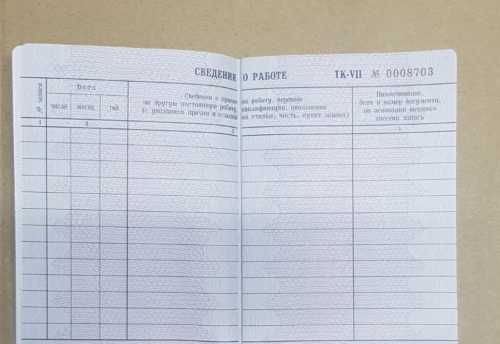 СВЕДЕНИЯ О РАБОТЕ ТК-VII № 0008703
№ записи
Дата
число месяц год
Сведения о приеме на работу, переводе
на другую постоянную работу, квалификации, увольнении
(с указанием причин и ссылкой на статью, часть, пункт закона)
Наименование,
дата и номер документа,
на основании которого
внесена запись
1 2 3 4